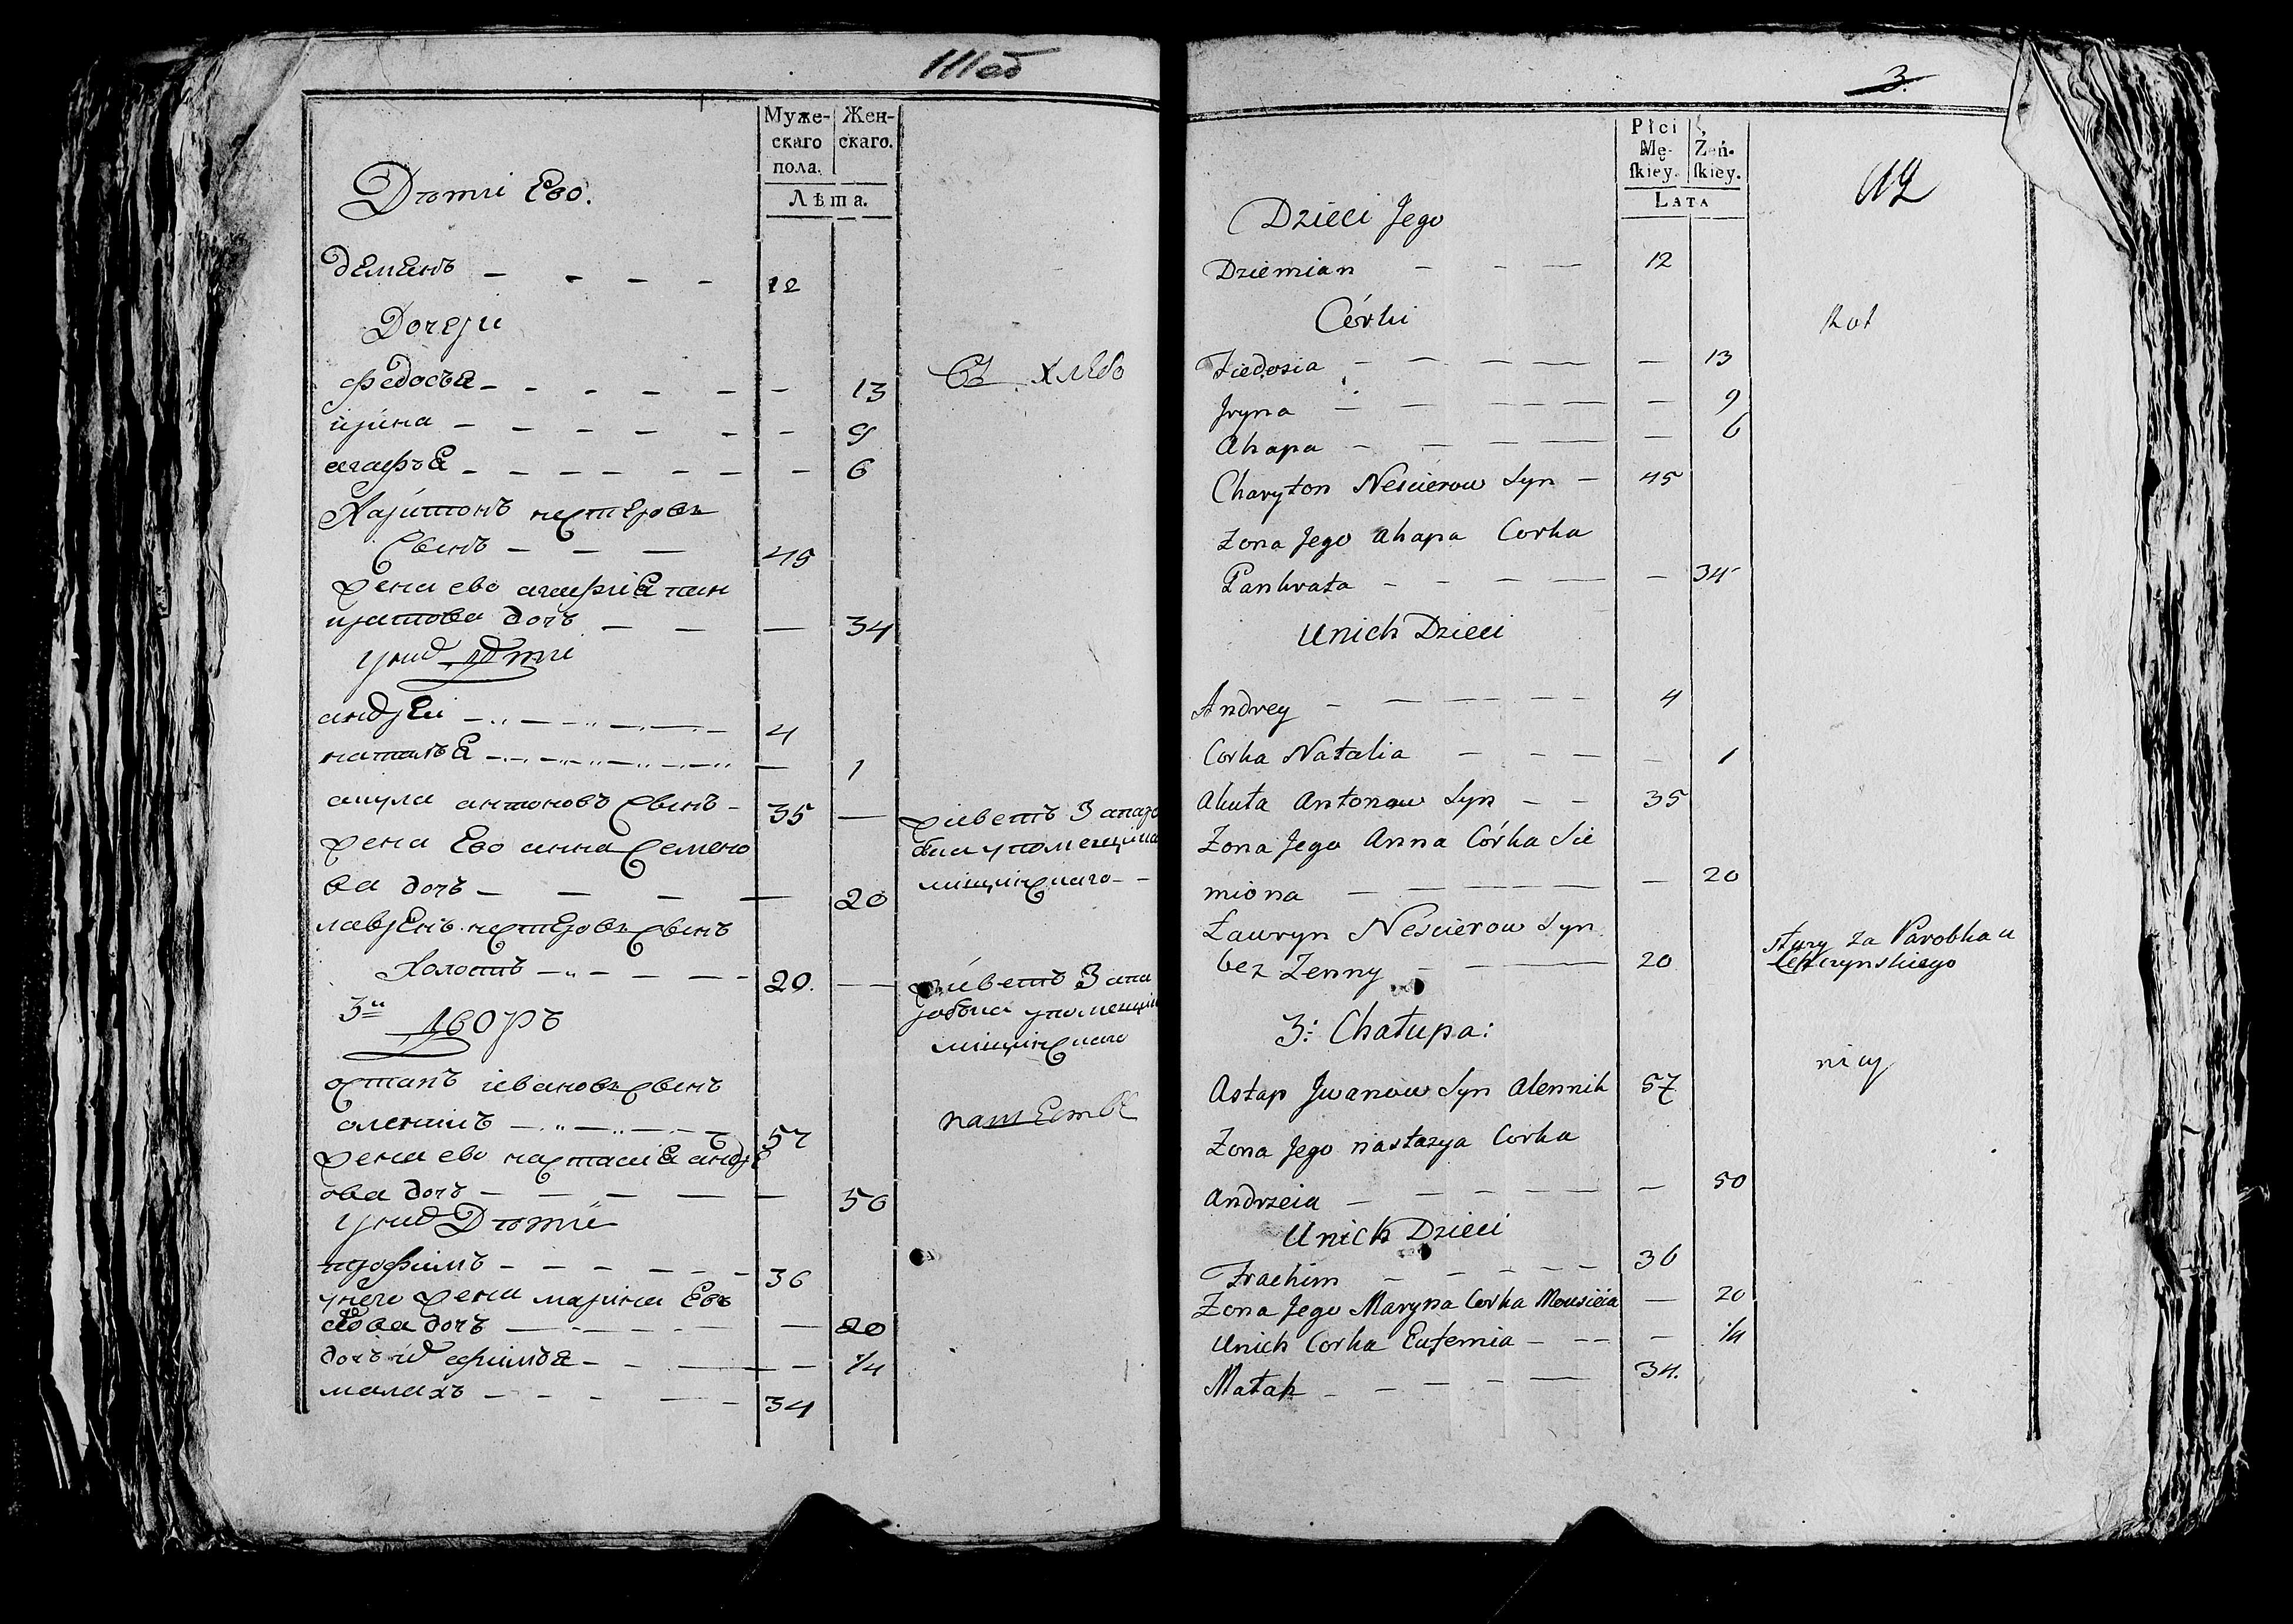 111об
Муже- Жен-
скаго скаго.
пола.
Лѣта.
Дѣти Ево.
демѣнъ 12
Дочери
федосья 13
Съ хлѣбо
ирина 9
агафья 6
Харитонъ нестеровъ
сынъ 45
жена ево агафия пан
кратова дочь 34
у них дѣти
андрей 4
наталья 1
акула антоновъ сынъ 35
живетъ за паро
бка у помещика
жена Ево анна семено
ва дочь 20
лаврень нестеровъ сынъ
Холостъ 20.
живетъ за па
робка у помещи
3й дворъ
остапъ ивановъ сынъ
57
жена ево настасия андре
ова дочь 50
у них Дѣти
трофимъ 36
у него жена марина
дочь 20
дочь их афимья 1/4
малахъ 34
3.
112
Płci
Mę- Żeń-
skiey. skiey.
LATA
Dzieci Jego
Dziemian 12
Córki
Fiedosia 13
Jryna 9
Ahapa 6
Charyton Nescierow Syn 45
Zona Jego Ahapa Corka
Pankrata 34
Unich Dzieci
Andrey 4
Corka Natalia 1
Akuła Antonow Syn 35
Zona Jego Anna Córka Sie
miona 20
Ławryn Nescierow Syn
bez Zenny 20
służy za Parobka u
3: Chałupa:
Astap Jwanow Syn Alennik 57
Zona Jego nastazya Corka
Andrzeia 50
Unich Dzieci
Trachim 36
Zona Jego Maryna Corka Mousieia 20
Unich Corka Eufemia 1/4
Małah 34.